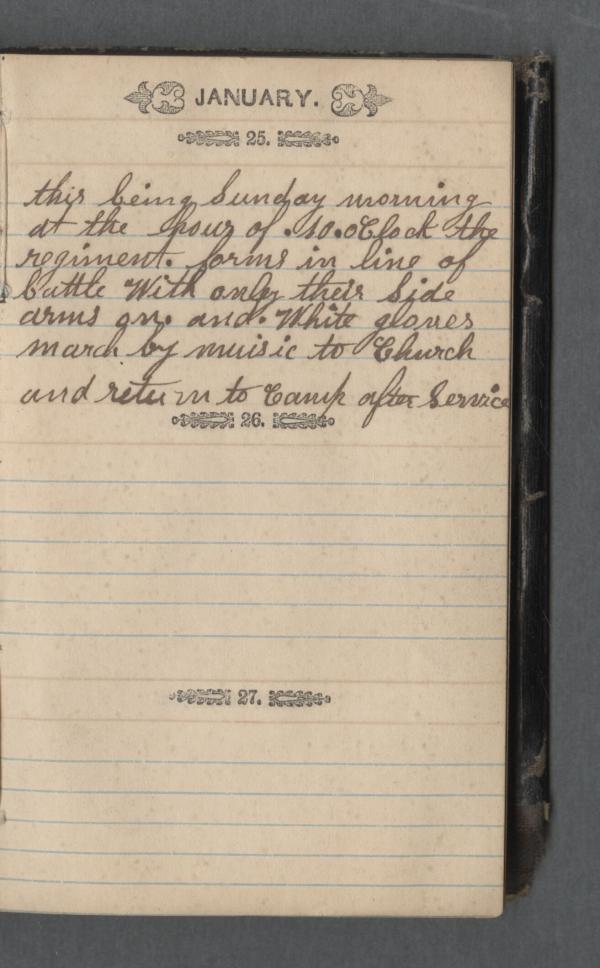 JANUARY.
25.
this being Sunday morning
at the hour of .10.oClock the
regiment. forms in line of
battle With only their Side
arms on. and. White gloves
march by muisic to Church
and return to Camp after Service
26.
27.